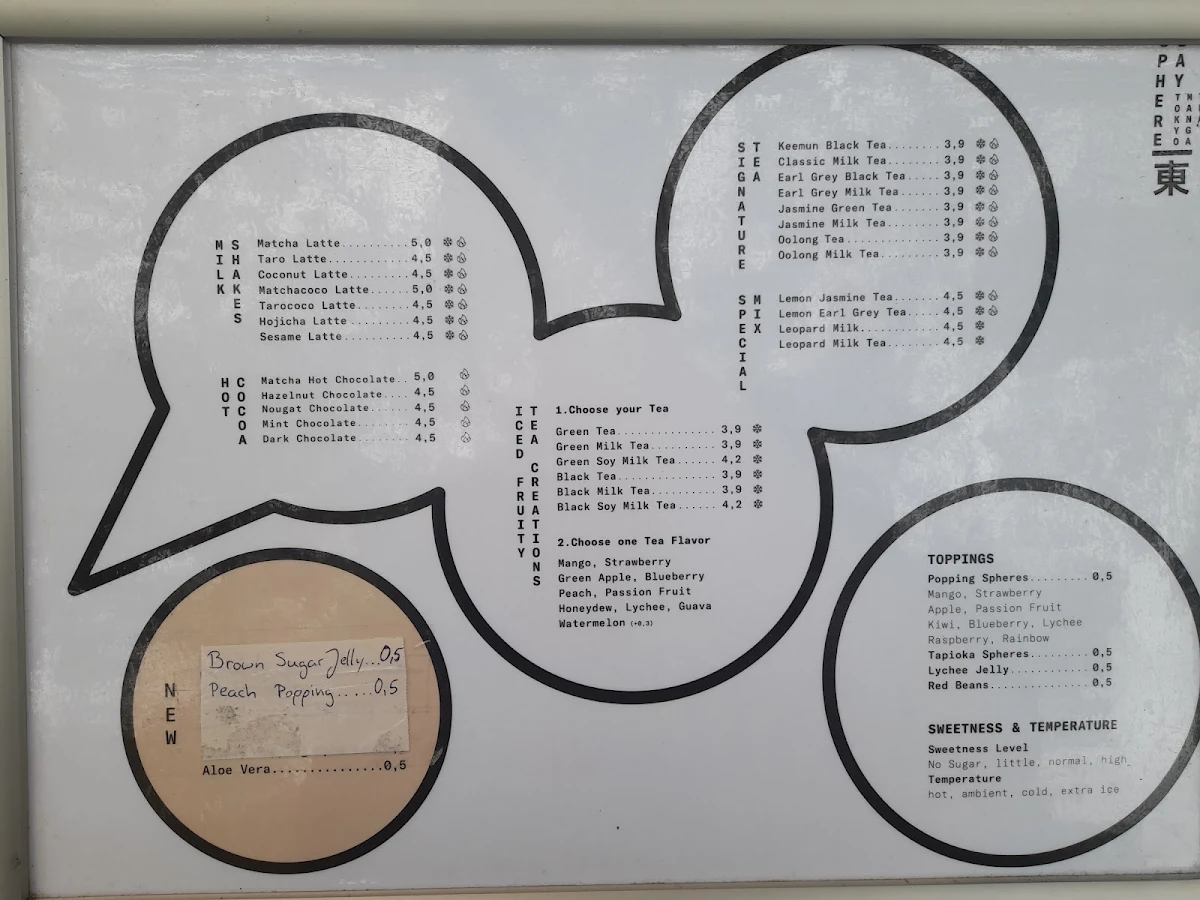 MILK SHAKES
Matcha Latte..........5,0
Taro Latte............4,5
Coconut Latte.........4,5
Matchacoco Latte......5,0
Tarococo Latte........4,5
Hojicha Latte.........4,5
Sesame Latte..........4,5
HOT COCOA
Matcha Hot Chocolate..5,0
Hazelnut Chocolate....4,5
Nougat Chocolate......4,5
Mint Chocolate........4,5
Dark Chocolate........4,5
SIGNATURE TEA
Keemun Black Tea........3,9
Classic Milk Tea........3,9
Earl Grey Black Tea.....3,9
Earl Grey Milk Tea......3,9
Jasmine Green Tea.......3,9
Jasmine Milk Tea........3,9
Oolong Tea..............3,9
Oolong Milk Tea.........3,9
SPECIAL MIX
Lemon Jasmine Tea.......4,5
Lemon Earl Grey Tea.....4,5
Leopard Milk............4,5
Leopard Milk Tea........4,5
ICED FRUITY TEA CREATIONS
1.Choose your Tea
Green Tea...............3,9
Green Milk Tea..........3,9
Green Soy Milk Tea......4,2
Black Tea...............3,9
Black Milk Tea..........3,9
Black Soy Milk Tea......4,2
2.Choose one Tea Flavor
Mango, Strawberry
Green Apple, Blueberry
Peach, Passion Fruit
Honeydew, Lychee, Guava
Watermelon (+0,3)
NEW
Brown Sugar Jelly...0,5
Peach Popping.....0,5
Aloe Vera...............0,5
TOPPINGS
Popping Spheres.........0,5
Mango, Strawberry
Apple, Passion Fruit
Kiwi, Blueberry, Lychee
Raspberry, Rainbow
Tapioka Spheres.........0,5
Lychee Jelly............0,5
Red Beans...............0,5
SWEETNESS & TEMPERATURE
Sweetness Level
No Sugar, little, normal, high
Temperature
hot, ambient, cold, extra ice
TOKYO
MANGA
東